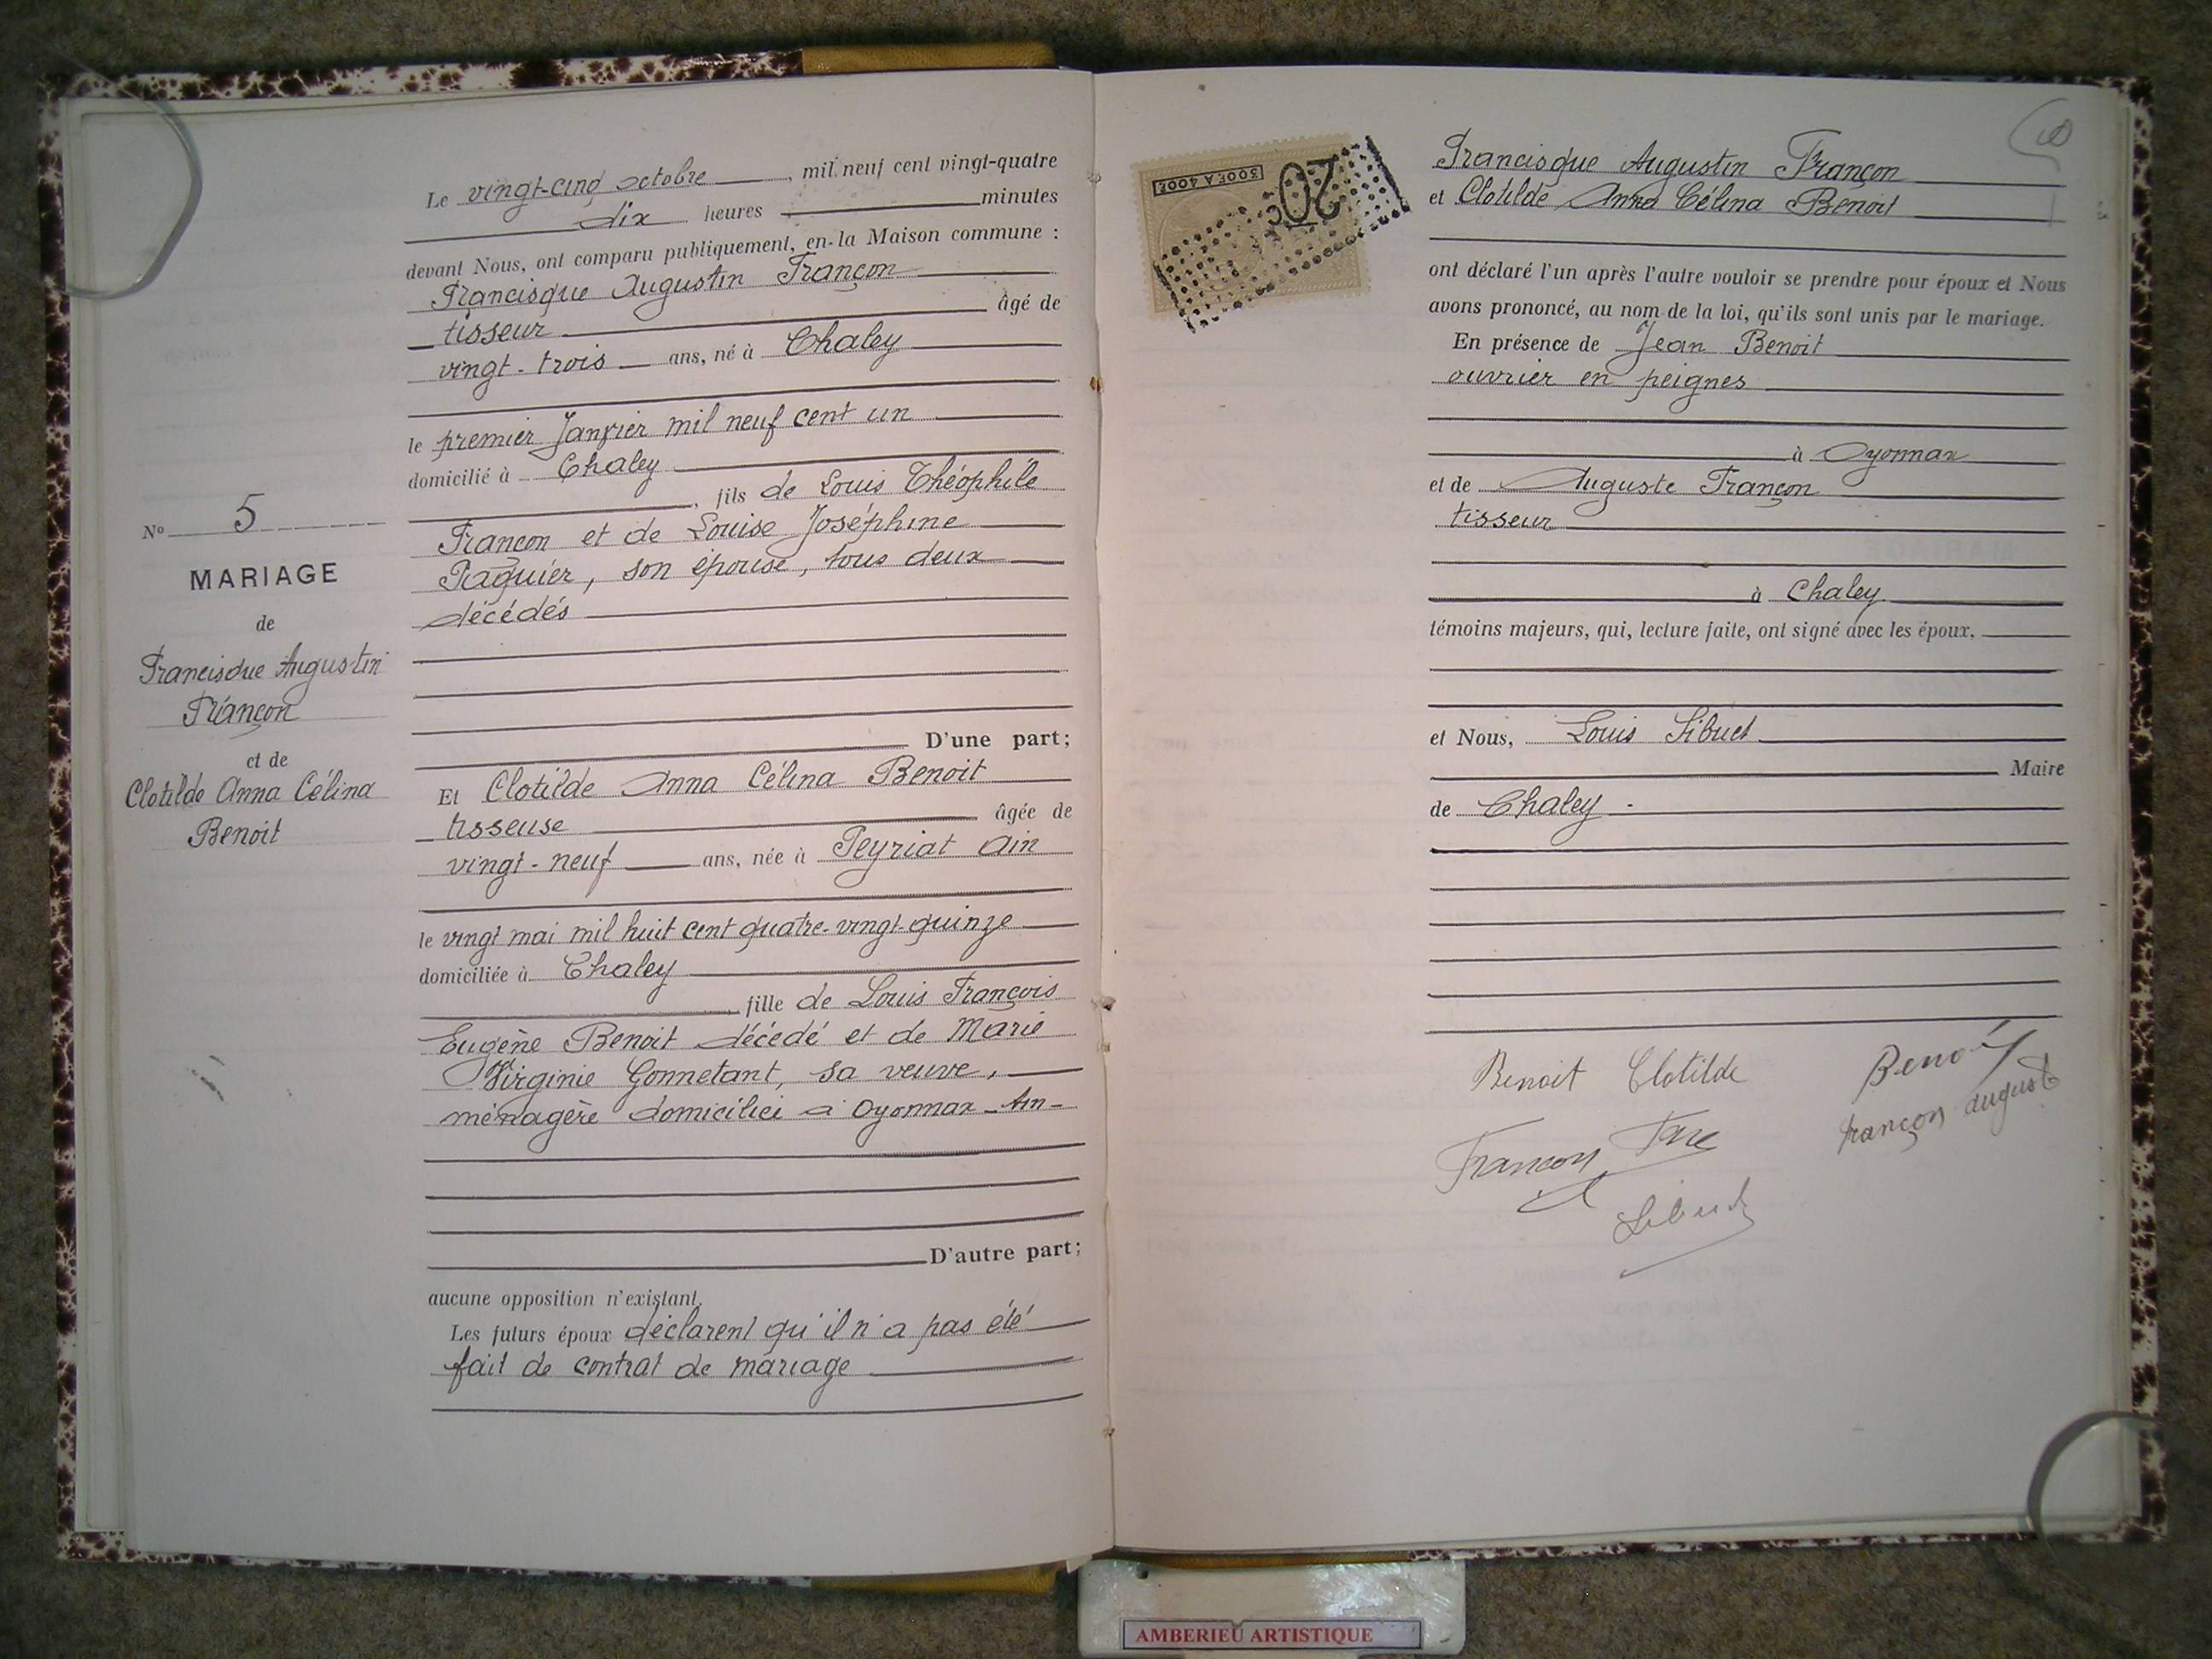 Le vingt-cinq octobre, mil neuf cent vingt-quatre
dix heures minutes
devant Nous, ont comparu publiquement, en la Maison commune :
Francisque Augustin Françon
tisseur âgé de
vingt-trois ans, né à Chaley
le premier Janvier mil neuf cent un
domicilié à Chaley
, fils de Louis Théophile
Françon et de Louise Joséphine
Raguier, son épouse, tous deux
décédés
D'une part;
Nº 5
MARIAGE
de
Francisque Augustin
Françon
et de
Clotilde Anna Célina
Benoit
Et Clotilde Anna Célina Benoit
tisseuse âgée de
vingt-neuf ans, née à Peyriat Ain
le vingt mai mil huit cent quatre-vingt-quinze
domiciliée à Chaley
, fille de Louis François
Eugène Benoit décédé et de Marie
Virginie Gonnetant, sa veuve,
ménagère domiciliée à Oyonnax - Ain -
D'autre part;
aucune opposition n'existant.
Les futurs époux déclarent qu'il n'a pas été
fait de contrat de mariage
300F A 400F
20c
Francisque Augustin Françon
et Clotilde Anna Célina Benoit
ont déclaré l'un après l'autre vouloir se prendre pour époux et Nous
avons prononcé, au nom de la loi, qu'ils sont unis par le mariage.
En présence de Jean Benoit
ouvrier en peignes
à Oyonnax
et de Auguste Françon
tisseur
à Chaley
témoins majeurs, qui, lecture faite, ont signé avec les époux,
et Nous, Louis Sibuet
Maire
de Chaley.
Benoit Clotilde
Benoit
françon auguste
Françon
Sibuet
AMBERIEU ARTISTIQUE